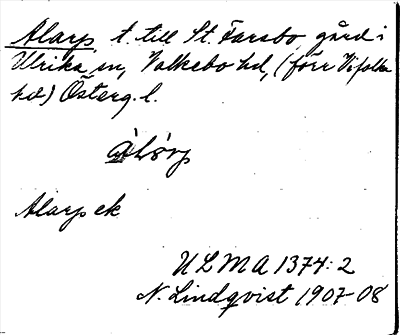 Alarp, t. till St. Farsbo, gård i
Ulrika sn, Valkebo hd, (förr Vifolka
hd) Österg. l.
Alarp ek
ULMA 1374:2
N. Lindqvist 1907-08